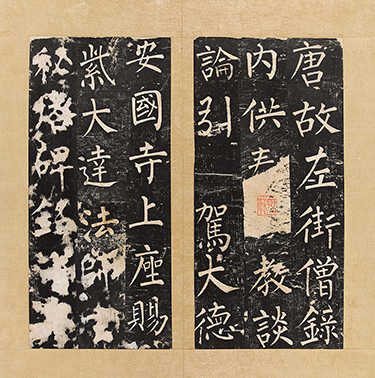 唐故左街僧錄
內供奉 教談
論引 駕大德
安國寺上座賜
紫大達法師玄
秘塔碑銘并